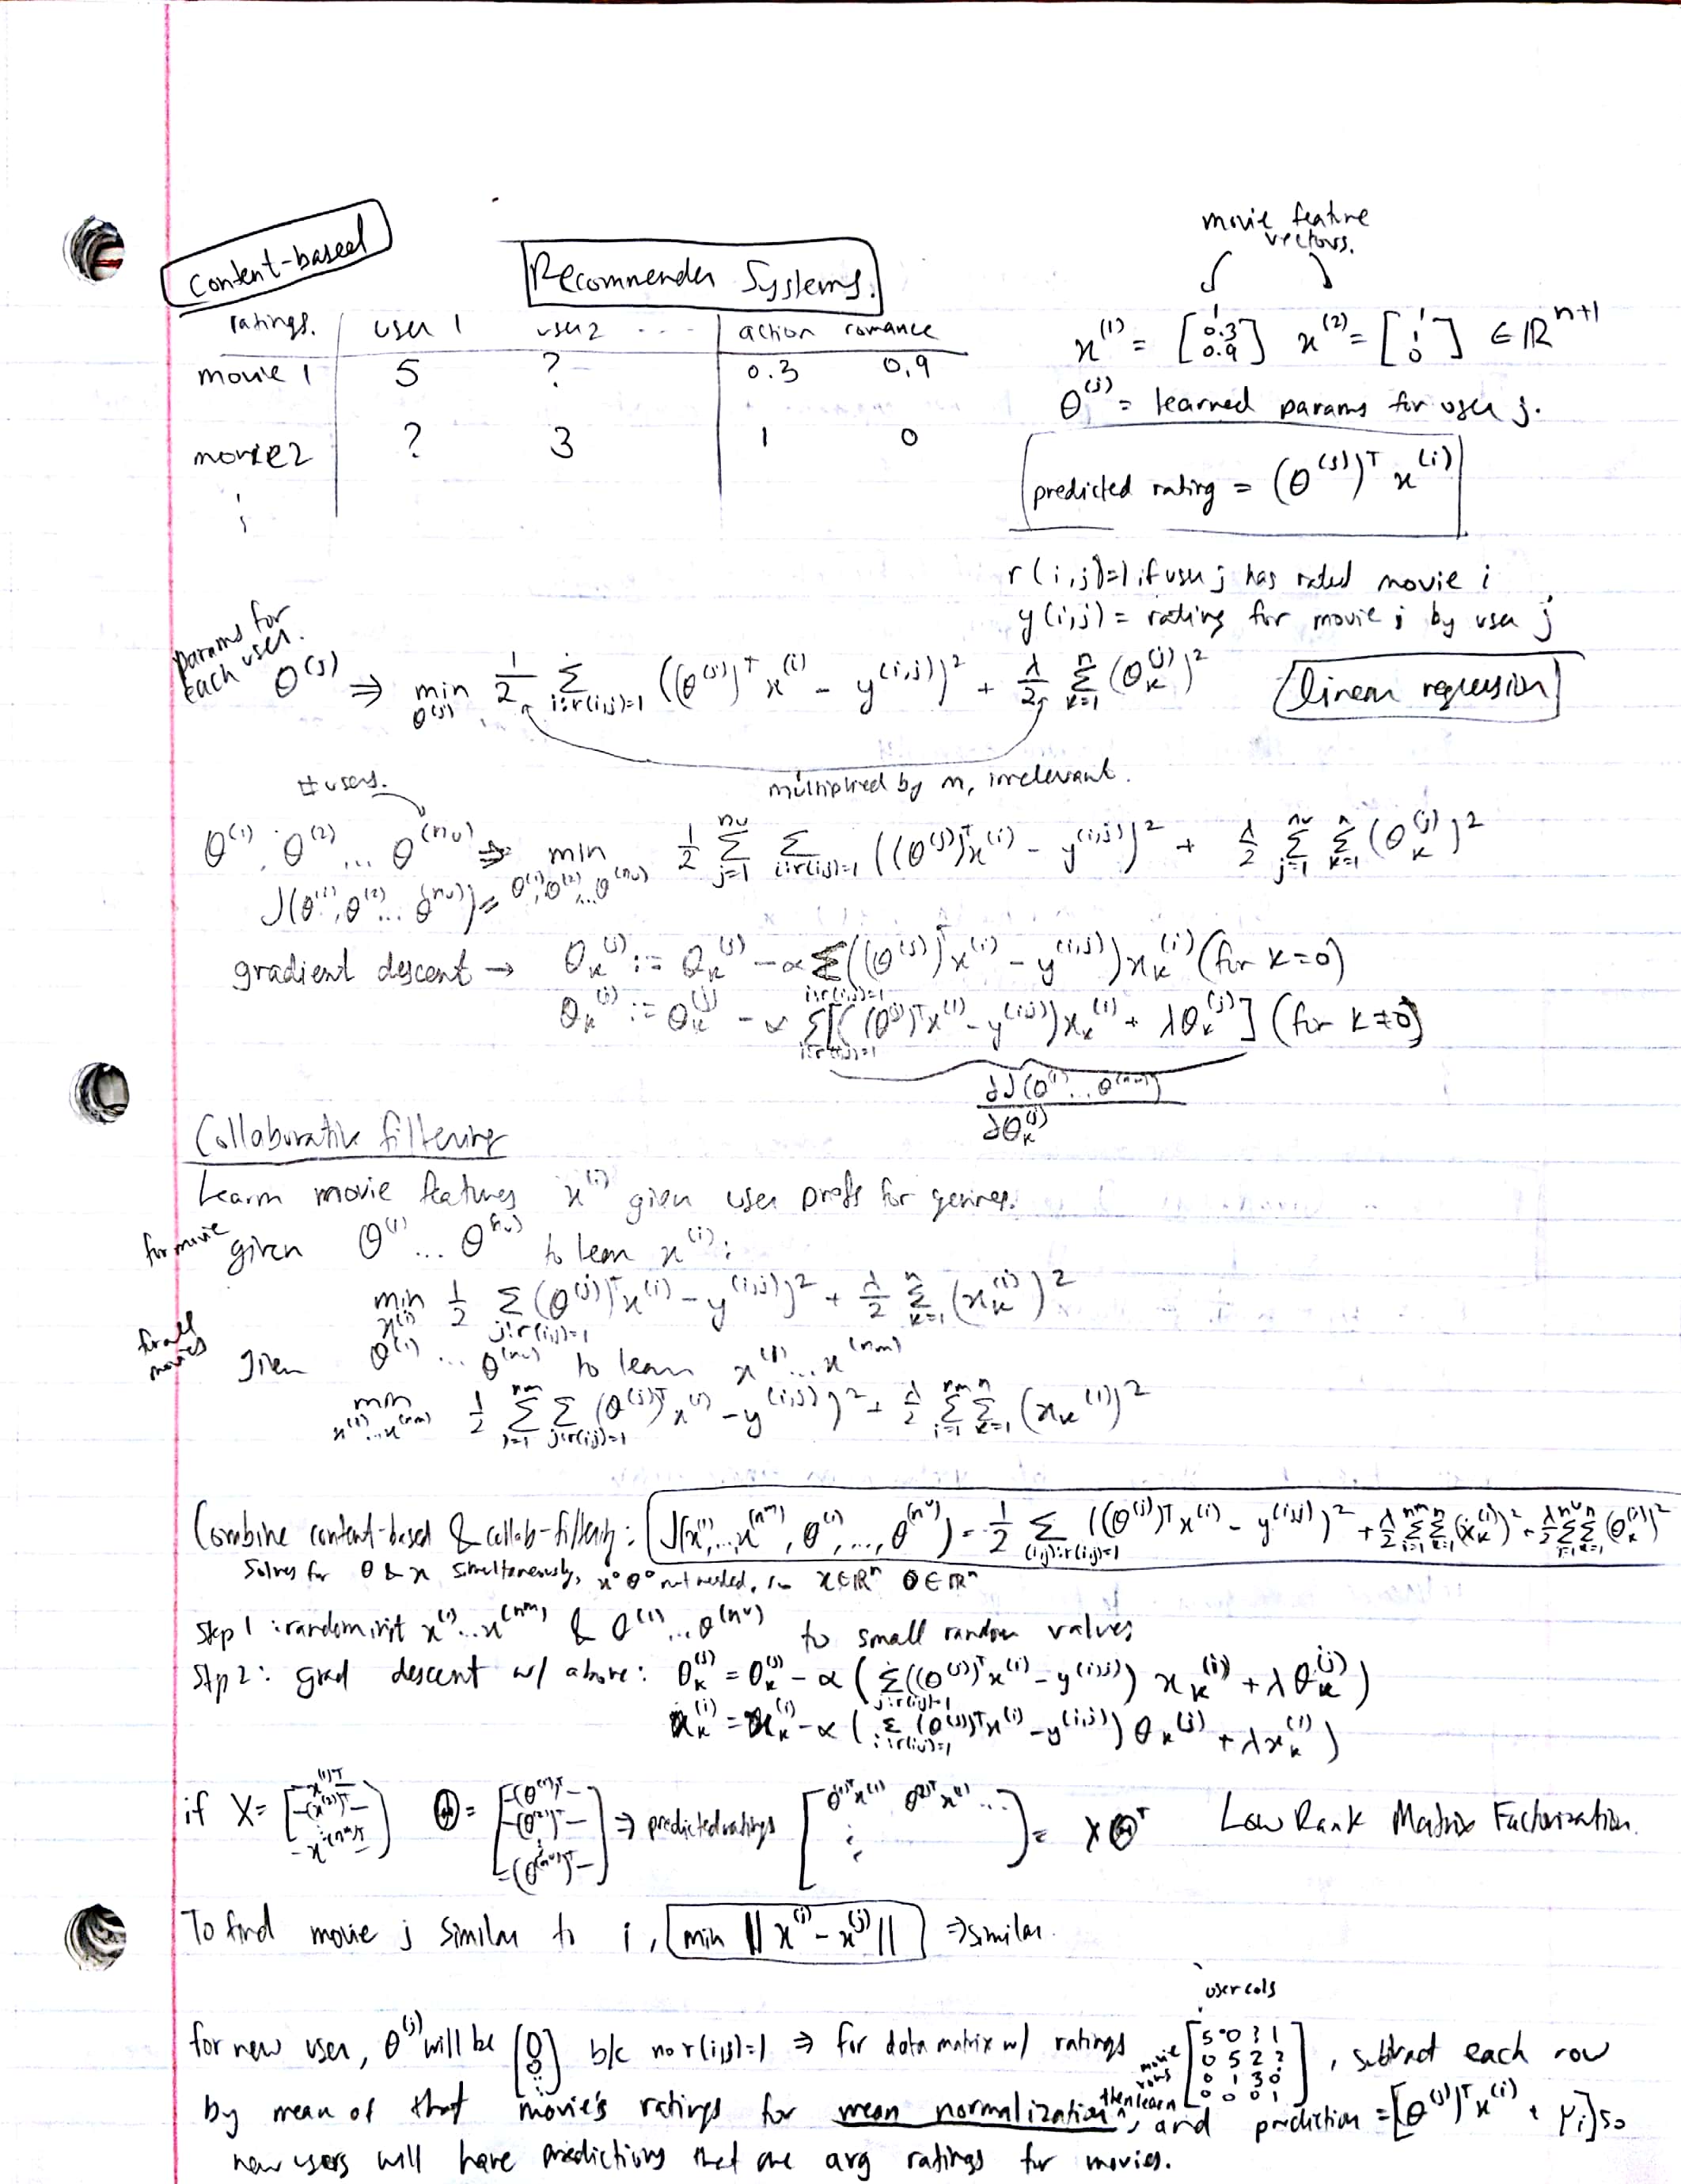 movie feature
vectors.
Content-based
Recommender Systems.
ratings. user 1 user 2 ... action romance
movie 1 5 ? 0.3 0.9
movie 2 ? 3 1 0
x^(1) = [1 0.3 0.9] x^(2) = [1 1 0] ∈ ℝ^(n+1)
θ^(j) = learned params for user j.
predicted rating = (θ^(j))^T x^(i)
r(i,j)=1 if user j has rated movie i
y(i,j) = rating for movie i by user j
params for
each user.
θ^(j) ⇒ min_θ^(j) 1/2 Σ_{i:r(i,j)=1} ((θ^(j))^T x^(i) - y^(i,j))^2 + λ/2 Σ_{k=1}^n (θ_k^(j))^2 linear regression
multiplied by m, irrelevant.
# users.
θ^(1), θ^(2) ... θ^(nu) ⇒ min_{θ^(1),θ^(2)...θ^(nu)} 1/2 Σ_{j=1}^{nu} Σ_{i:r(i,j)=1} ((θ^(j))^T x^(i) - y^(i,j))^2 + λ/2 Σ_{j=1}^{nu} Σ_{k=1}^n (θ_k^(j))^2
J(θ^(1), θ^(2) ... θ^(nu)) =
gradient descent → θ_k^(j) := θ_k^(j) - α Σ_{i:r(i,j)=1} ((θ^(j))^T x^(i) - y^(i,j)) x_k^(i) (for k=0)
θ_k^(j) := θ_k^(j) - α Σ_{i:r(i,j)=1} [((θ^(j))^T x^(i) - y^(i,j)) x_k^(i) + λθ_k^(j)] (for k≠0)
∂J(θ^(1)...θ^(nu)) / ∂θ_k^(j)
Collaborative filtering
Learn movie features x^(i) given user prefs for genres.
for movie given θ^(1) ... θ^(nu) to learn x^(i):
min_x^(i) 1/2 Σ_{j:r(i,j)=1} (θ^(j))^T x^(i) - y^(i,j))^2 + λ/2 Σ_{k=1}^n (x_k^(i))^2
for all
movies given θ^(1) ... θ^(nu) to learn x^(1) ... x^(nm)
min_{x^(1)...x^(nm)} 1/2 Σ_{i=1}^{nm} Σ_{j:r(i,j)=1} (θ^(j))^T x^(i) - y^(i,j))^2 + λ/2 Σ_{i=1}^{nm} Σ_{k=1}^n (x_k^(i))^2
Combine content-based & collab-filtering: J(x^(1),...,x^(nm), θ^(1),...,θ^(nu)) = 1/2 Σ_{(i,j):r(i,j)=1} ((θ^(j))^T x^(i) - y^(i,j))^2 + λ/2 Σ_{i=1}^{nm} Σ_{k=1}^n (x_k^(i))^2 + λ/2 Σ_{j=1}^{nu} Σ_{k=1}^n (θ_k^(j))^2
solves for θ & x simultaneously, x° θ° not needed, so x∈ℝ^n θ∈ℝ^n
Step 1: random init x^(1)...x^(nm) & θ^(1)...θ^(nu) to small random values
Stp 2: grad descent w/ above: θ_k^(j) = θ_k^(j) - α (Σ_{j:r(i,j)=1} ((θ^(j))^T x^(i) - y^(i,j)) x_k^(i) + λθ_k^(j))
x_k^(i) = x_k^(i) - α (Σ_{i:r(i,j)=1} (θ^(j))^T x^(i) - y^(i,j)) θ_k^(j) + λx_k^(i))
if X = [-x^(1)T- -(x^(2))^T- : -x^(nm)T-] Θ = [-(θ^(1))^T- -(θ^(2))^T- : -(θ^(nu))^T-] ⇒ predicted ratings [θ^(1)T x^(1) θ^(2)T x^(1) ... :] = XΘ^T Low Rank Matrix Factorization.
To find movie j similar to i, min ||x^(i) - x^(j)|| ⇒ similar.
user cols
for new user, θ^(j) will be [0 0 :] b/c no r(i,j)=1 ⇒ for data matrix w/ ratings movie rows [5 0 3 1 / 0 5 2 2 / 0 1 3 0 / 0 0 0 1], subtract each row
by mean of that movie's ratings for mean normalization, then learn and prediction = [(θ^(j))^T x^(i) + μ_i] so
new users will have predictions that are avg ratings for movies.